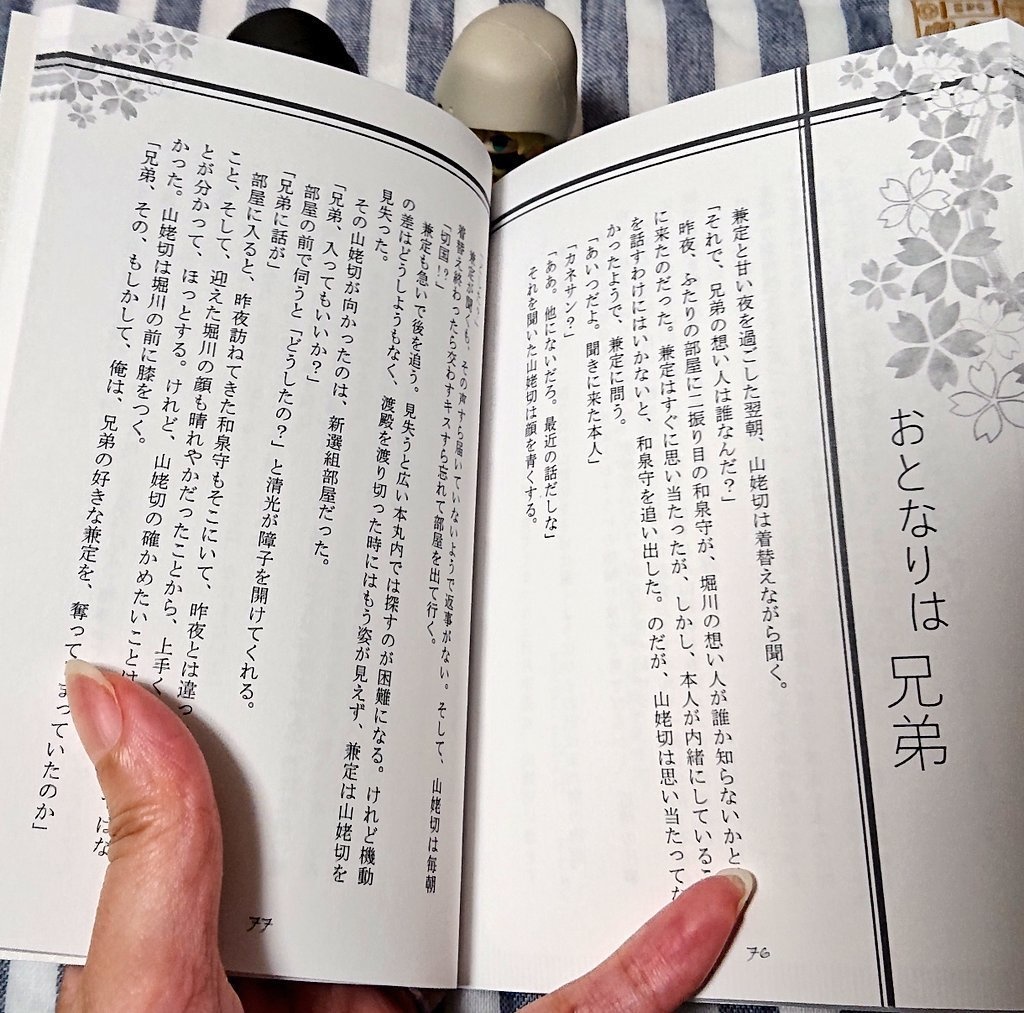 おとなりは 兄弟
兼定と甘い夜を過ごした翌朝、山姥切は着替えながら聞く。
「それで、兄弟の想い人は誰なんだ?」
昨夜、ふたりの部屋に二振り目の和泉守が、堀川の想い人が誰か知らないかと
に来たのだった。兼定はすぐに思い当たったが、しかし、本人が内緒にしているこ
を話すわけにはいかないと、和泉守を追い出した。のだが、山姥切は思い当たってな
かったようで、兼定に問う。
「あいつだよ。聞きに来た本人」
「カネサン?」
「ああ。他にないだろ。最近の話だしな」
それを聞いた山姥切は顔を青くする。
76
兼定が聞くも、その声すら届いていないようで返事がない。そして、山姥切は毎朝
着替え終わったら交わすキスすら忘れて部屋を出て行く。
「切国!?」
兼定も急いで後を追う。見失うと広い本丸内では探すのが困難になる。けれど機動
の差はどうしようもなく、渡殿を渡り切った時にはもう姿が見えず、兼定は山姥切を
見失った。
その山姥切が向かったのは、新選組部屋だった。
「兄弟、入ってもいいか?」
部屋の前で伺うと「どうしたの?」と清光が障子を開けてくれる。
「兄弟に話が」
部屋に入ると、昨夜訪ねてきた和泉守もそこにいて、昨夜とは違っ
こと、そして、迎えた堀川の顔も晴れやかだったことから、上手く
とが分かって、ほっとする。けれど、山姥切の確かめたいことは
はな
かった。山姥切は堀川の前に膝をつく。
「兄弟、その、もしかして、俺は、兄弟の好きな兼定を、奪って まっていたのか」
77